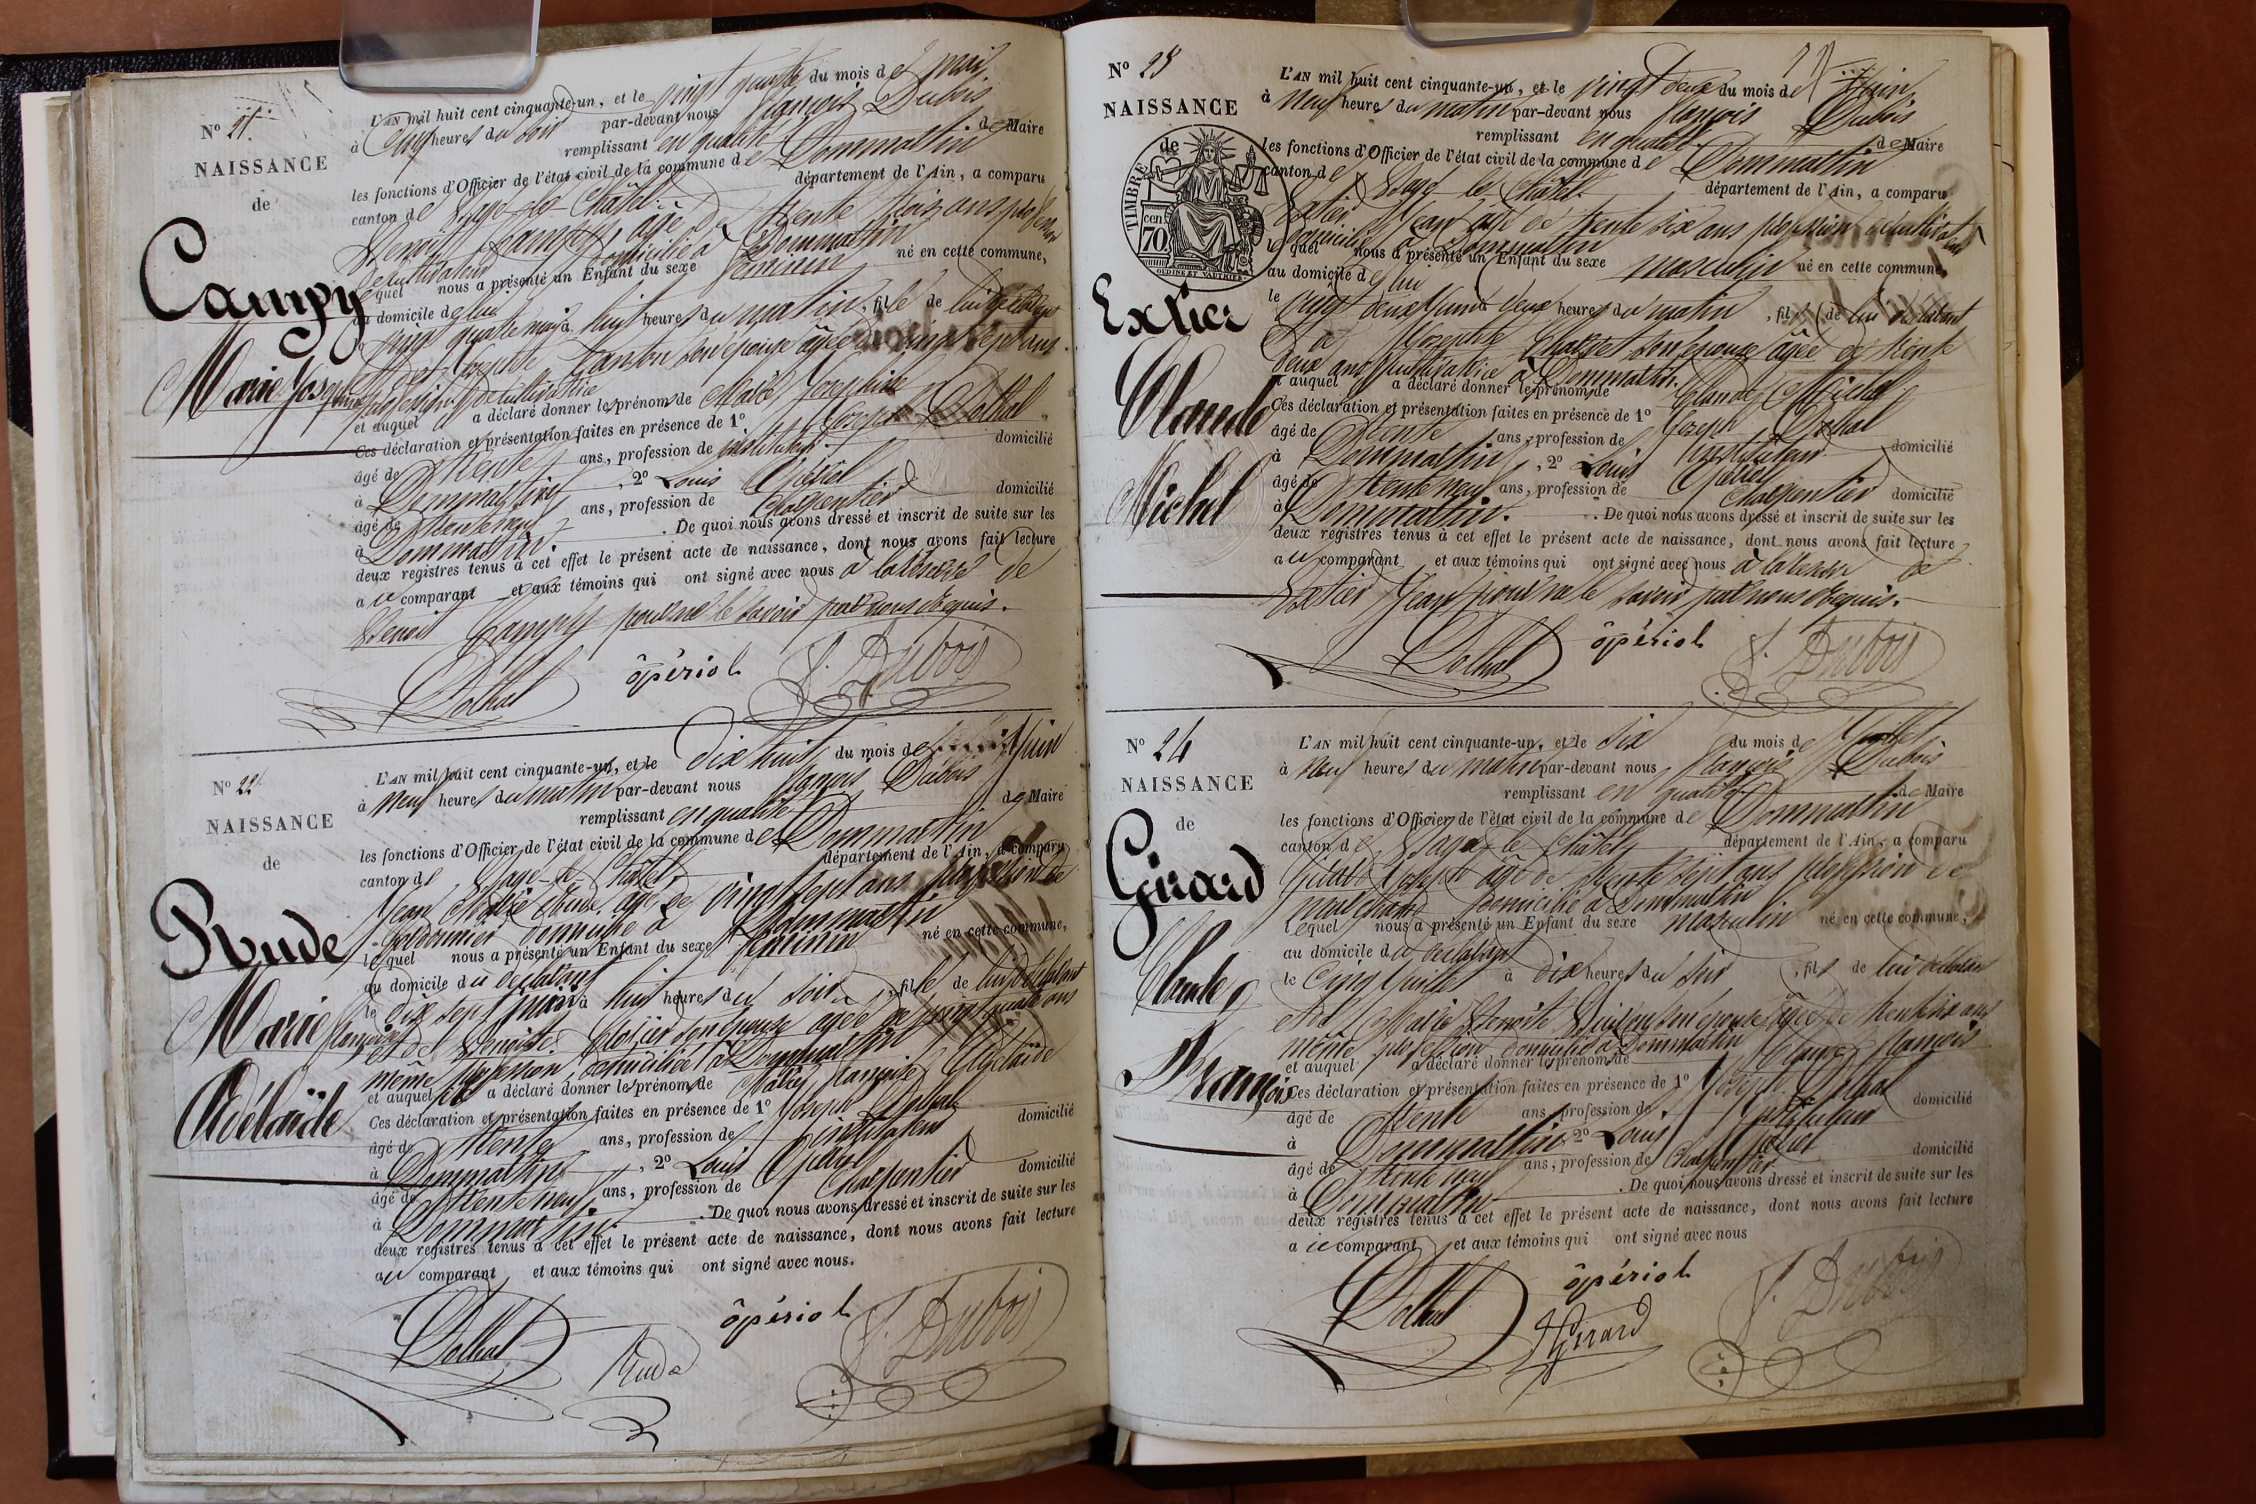 N° 21.
NAISSANCE
de
Campy
Marie Josephine
L'AN mil huit cent cinquante-un, et le vingt quatre du mois de mai
à Cinq heures du soir par-devant nous françois Dubois
remplissant en qualité de Maire
les fonctions d'Officier de l'état civil de la commune de Dommartin
canton de Bagé-le-Châtel département de l'Ain, a comparu
Benoit Campy, âgé de trente trois ans profession
de cultivateur domicilié à Dommartin
lequel nous a présenté un Enfant du sexe féminin né en cette commune,
au domicile de lui
vingt quatre mai à huit heures du matin, fille de lui déclarant
son épouse âgée de vingt sept ans
profession de cultivatrice
et auquel a déclaré donner le prénom de Marie Josephine
Ces déclaration et présentation faites en présence de 1° Joseph Dothal
âgé de trente ans, profession de instituteur domicilié
à Dommartin, 2° Louis Opériol
âgé de trente neuf ans, profession de Charpentier domicilié
à Dommartin. De quoi nous avons dressé et inscrit de suite sur les
deux registres tenus à cet effet le présent acte de naissance, dont nous avons fait lecture
a u comparant et aux témoins qui ont signé avec nous à la réserve de
Benoit Campy pour ne le savoir par nous requis.
Dothal ôpériol f. Dubois
N° 22
NAISSANCE
de
Rude
Marie françoise
Adélaïde
L'AN mil huit cent cinquante-un, et le dix huit du mois de Juin
à Neuf heures du matin par-devant nous françois Dubois
remplissant en qualité de Maire
les fonctions d'Officier de l'état civil de la commune de Dommartin
canton de Bagé-le-Châtel département de l'Ain, a comparu
Jean Marie Rude, âgé de vingt sept ans profession de
cordonnier domicilié à Dommartin
lequel nous a présenté un Enfant du sexe féminin né en cette commune,
au domicile du déclarant
le dix sept à huit heures du soir, fille de lui déclarant
et de Benoite son épouse âgée de vingt quatre ans
même profession domiciliée à Dommartin
et auquel a déclaré donner le prénom de Marie françoise Adélaïde
Ces déclaration et présentation faites en présence de 1° Joseph Dothal
âgé de trente ans, profession de instituteur domicilié
à Dommartin, 2° Louis Opériol
âgé de trente neuf ans, profession de Charpentier domicilié
à Dommartin. De quoi nous avons dressé et inscrit de suite sur les
deux registres tenus à cet effet le présent acte de naissance, dont nous avons fait lecture
au comparant et aux témoins qui ont signé avec nous.
Dothal Rude ôpériol f. Dubois
N° 23
NAISSANCE
de
TIMBRE
70 cen
OUDINE ET VAUTHIER
Extier
Claude
Michel
L'AN mil huit cent cinquante-un, et le vingt deux du mois de Juin
à Neuf heures du matin par-devant nous françois Dubois
remplissant en qualité de Maire
les fonctions d'Officier de l'état civil de la commune de Dommartin
canton de Bagé-le-Châtel département de l'Ain, a comparu
Extier Jean âgé de trente six ans profession de cultivateur
domicilié à Dommartin
lequel nous a présenté un Enfant du sexe masculin né en cette commune,
au domicile de lui
le vingt deux à deux heures du matin, fils de lui déclarant
son épouse âgée de trente
deux ans cultivatrice à Dommartin.
et auquel a déclaré donner le prénom de Claude Michel
Ces déclaration et présentation faites en présence de 1° Joseph Dothal
âgé de trente ans, profession de instituteur domicilié
à Dommartin, 2° Louis Opériol
âgé de trente neuf ans, profession de Charpentier domicilié
à Dommartin. De quoi nous avons dressé et inscrit de suite sur les
deux registres tenus à cet effet le présent acte de naissance, dont nous avons fait lecture
au comparant et aux témoins qui ont signé avec nous à la réserve de
Extier Jean pour ne le savoir par nous requis.
Dothal ôpériol f. Dubois
N° 24
NAISSANCE
de
Girard
Claude
François
L'AN mil huit cent cinquante-un, et le six du mois de Juillet
à Neuf heures du matin par-devant nous françois Dubois
remplissant en qualité de Maire
les fonctions d'Officier de l'état civil de la commune de Dommartin
canton de Bagé-le-Châtel département de l'Ain, a comparu
Girard Joseph âgé de trente sept ans profession de
domicilié à Dommartin
lequel nous a présenté un Enfant du sexe masculin né en cette commune,
au domicile du déclarant
le Cinq Juillet à dix heures du soir, fils de lui déclarant
et de Marie Benoite son épouse âgée de trente six ans
même profession domicilié à Dommartin
et auquel a déclaré donner le prénom de Claude françois
Ces déclaration et présentation faites en présence de 1° Joseph Dothal
âgé de trente ans, profession de instituteur domicilié
à Dommartin, 2° Louis Opériol
âgé de trente neuf ans, profession de Charpentier domicilié
à Dommartin. De quoi nous avons dressé et inscrit de suite sur les
deux registres tenus à cet effet le présent acte de naissance, dont nous avons fait lecture
a u comparant et aux témoins qui ont signé avec nous
Dothal Girard ôpériol f. Dubois